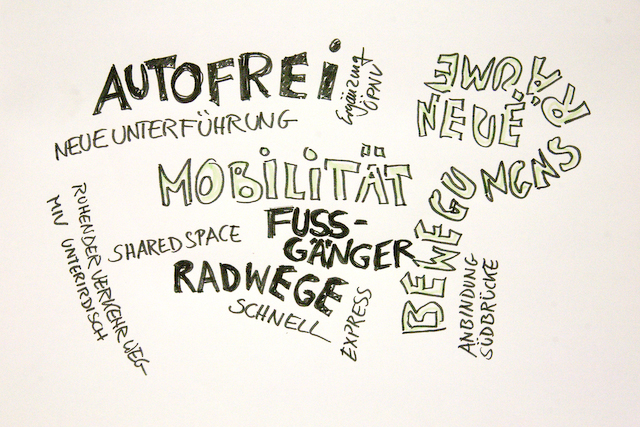 AUTOFREi
Ergänzung
ÖPNV
NEUE UNTERFÜHRUNG
MOBiLiTÄT
NEUE
BEWEGUNGNS
RÄUME
FUSS-
GÄNGER
SHARED SPACE
RADWEGE
SCHNELL
EXPRESS
RUHENDER VERKEHR WEG-
MIV UNTERIRDISCH
ANBINDUNG
SÜDBRÜCKE